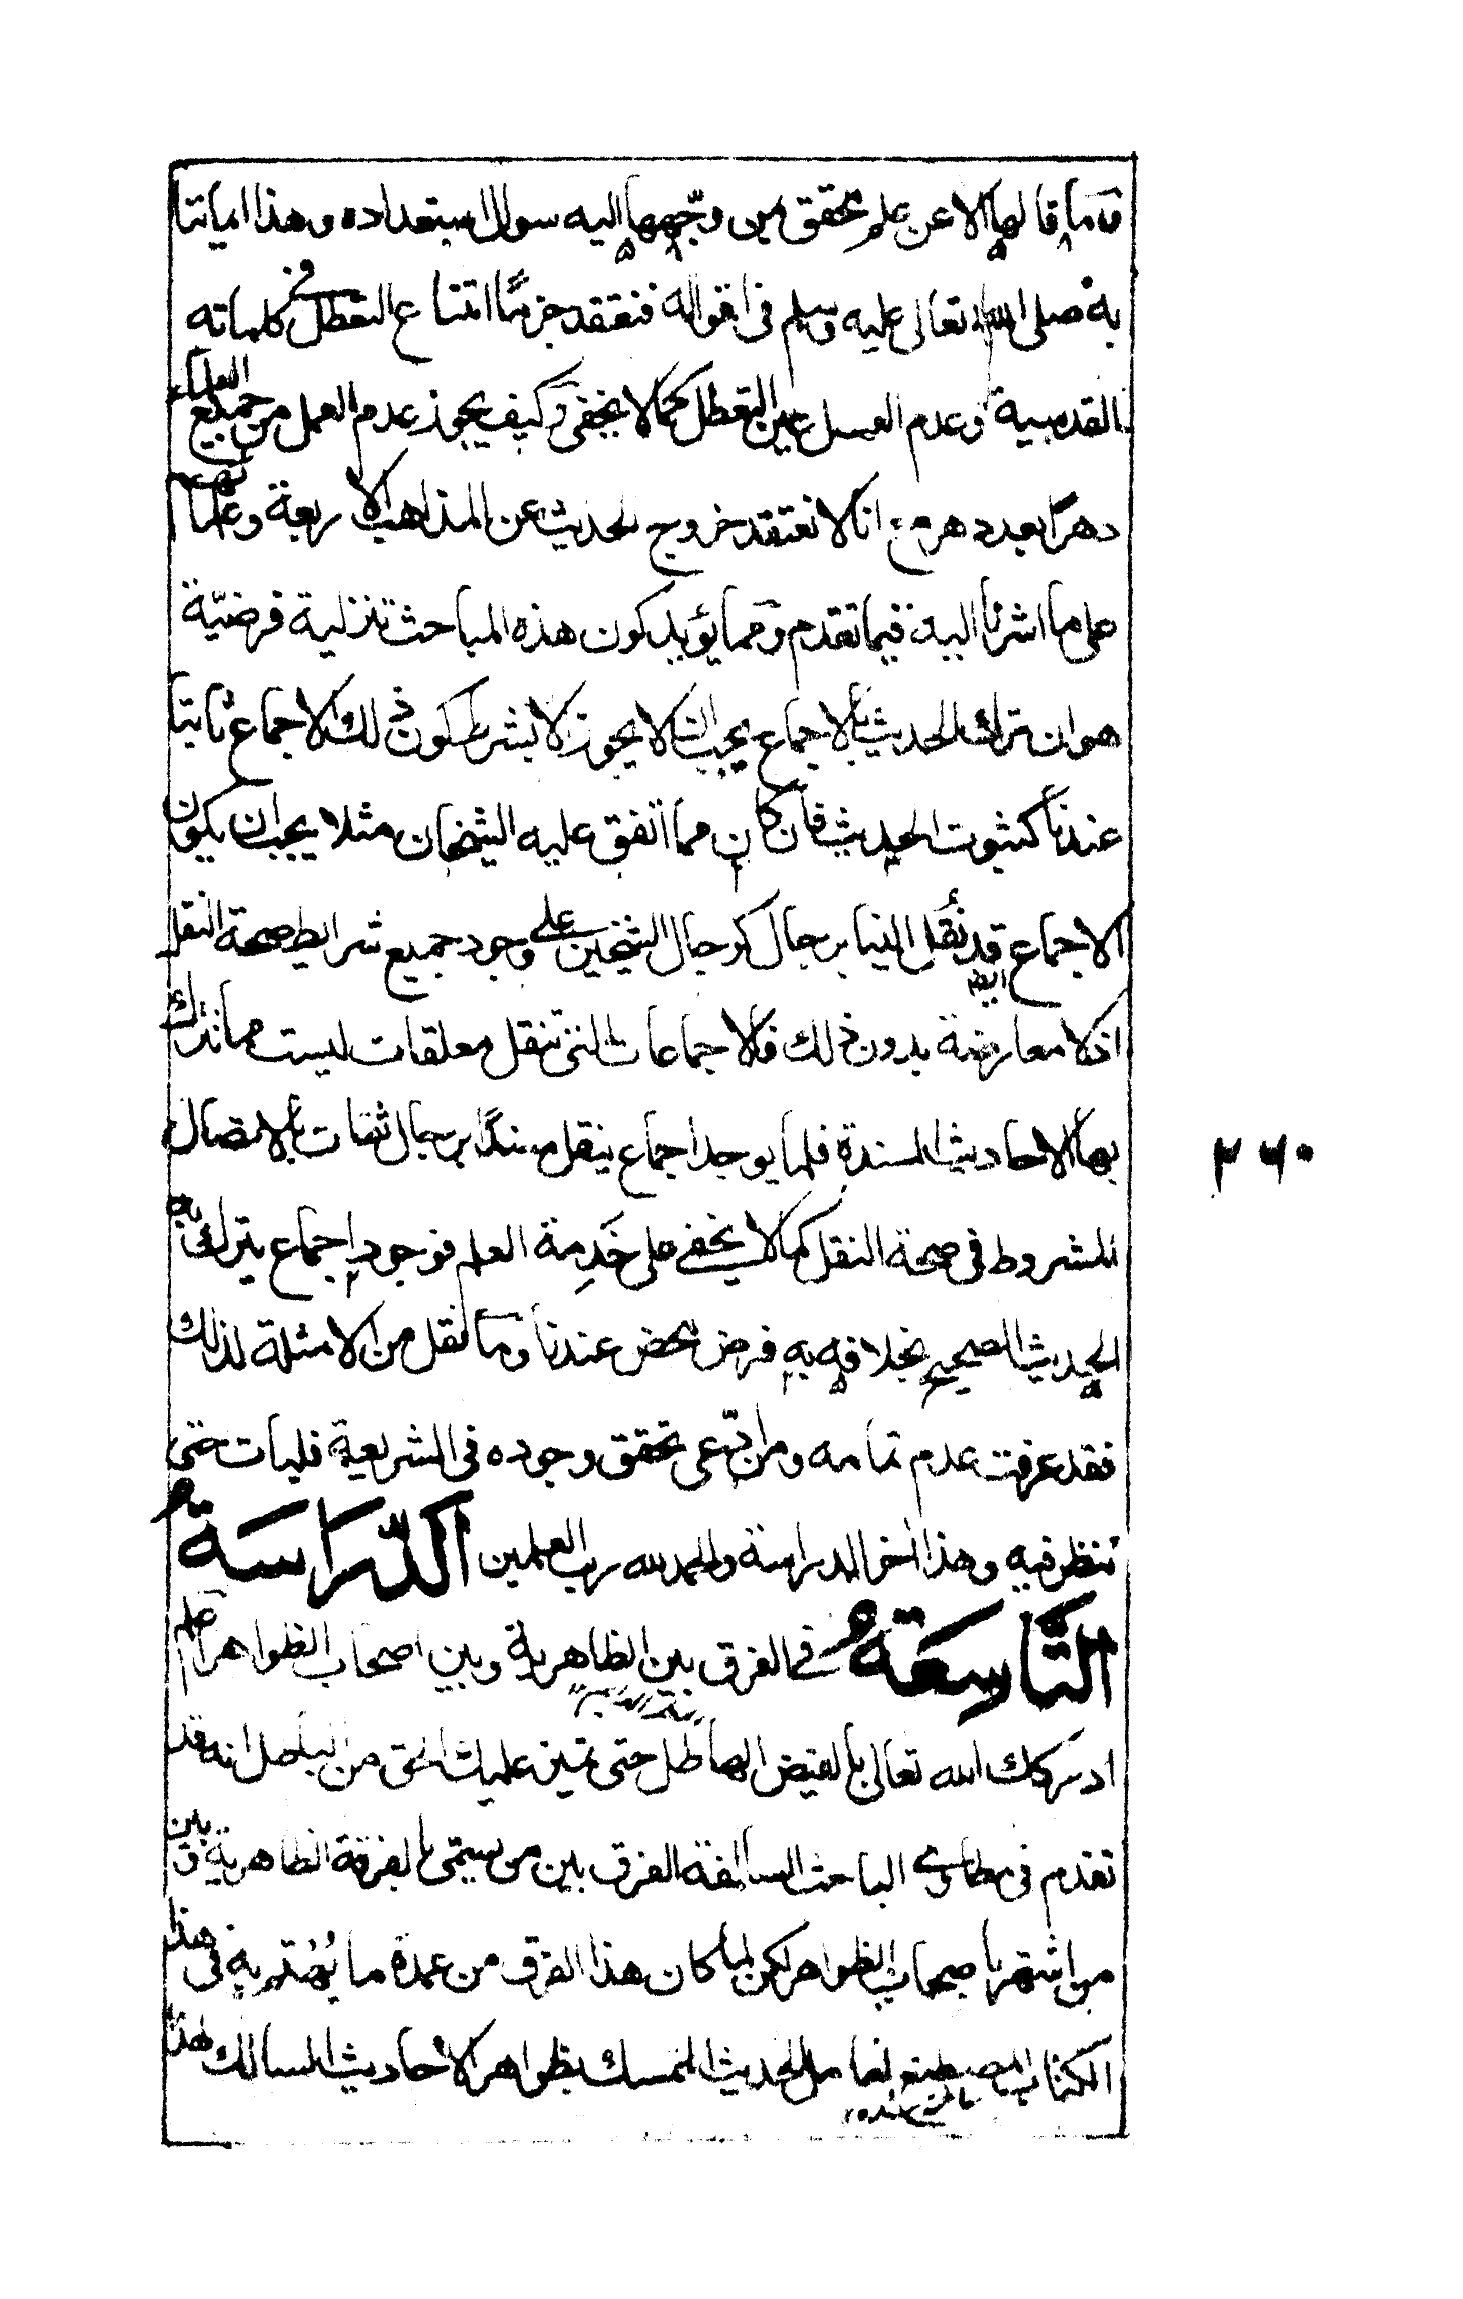 وما قالها الا عن علم تحقق يمن وجهها اليه سوال استعداده وهذا ايماننا
به صلى الله تعالى عليه وسلم في اقواله فنعتقد جزما امتناع التعطل في كلماته
القدسية وعدم العمل عين التعطل كما لا يخفى وكيف يجوز عدم العمل من جميع العلماء
دهرا بعد دهر مع انا لا نعتقد خروج الحديث عن المذاهب الاربعة وعلمائهم
على ما اشرنا اليه فيما تقدم ومما يؤيد كون هذه المباحث تنزلية فرضيّة
هو ان ترك الحديث بالاجماع يجب ان لا يجوز الا بشرط كون ذلك الاجماع ثابتا
عندنا كثبوت الحديث فان كان مما اتفق عليه الشيخان مثلا يجب ان يكون
الاجماع قد نقل الينا برجال كرجال الشيخين على وجود جميع شرايط صحة النقل
اذ لا معارضة بدون ذلك فالاجماعات التي تنقل معلقات ليست مما تترك
بها الاحاديث المسندة فلما يوجد اجماع ينقل مسندا برجال ثقات بالاتصال
المشروط في صحة النقل كما لا يخفى على خَدِمة العلم فوجود اجماع يترك به
الحديث الصحيح بخلافه به فرض محض عندنا وما نقل من الامثلة لذلك
فقد عرفت عدم تمامه ومن ادّعى تحقق وجوده في الشريعة فليات حتى
ننظر فيه وهذا اخر الدراسة والحمد لله رب العلمين الدِّرَاسَة
التَّاسِعَة في الفرق بين الظاهرية وبين اصحاب الظواهر اعلم
ادركك الله تعالى بالفيض الهاطل حتى تميز عليك الحق من الباطل انه قد
تقدم في مطاوى المباحث السالفة الفرق بين من يسمى بالفرقة الظاهرية وبين
من اشتهر باصحاب الظواهر لكن لما كان هذا الفرق من عمدة ما يُهْتم به في هذا
الكتاب لعامل الحديث المتمسك بظواهر الاحاديث السالك لهذا
٢٦٠